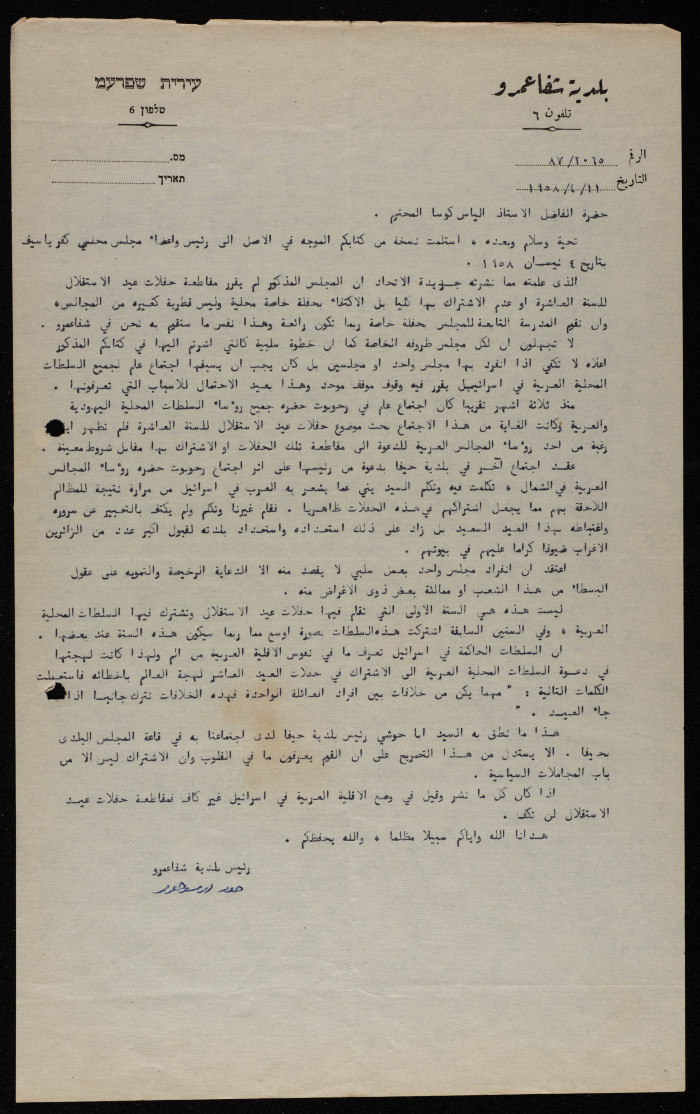 בلدية شفاعمرو
تلفون ٦
עירית שפרעם
טלפון 6
الرقم ٨٧/٢٠٦٥
التاريخ ١٩٥٨/٤/١١
מס.
תאריך
حضرة الفاضل الاستاذ الياس كوسا المحترم .
تحية وسلام وبعده ، استلمت نسخة من كتابكم الموجه في الاصل الى رئيس واعضاء مجلس محلي كفرياسيف
بتاريخ ٤ نيسان ١٩٥٨ .
الذى علمته مما نشرته جريدة الاتحاد ان المجلس المذكور لم يقرر مقاطعة حفلات عيد الاستقلال
للسنة العاشرة او عدم الاشتراك بها كليا بل الاكتفاء بحفلة خاصة محلية وليس قطرية كغيره من المجالس،
وان تقيم المدرسة التابعة للمجلس حفلة خاصة ربما تكون رائعة وهذا نفس ما سنقوم به نحن في شفاعمرو .
لا تجهلون ان لكل مجلس ظروفه الخاصة كما ان خطوة سلبية كالتي اشرتم اليها في كتابكم المذكور
اعلاه لا تكفي اذا انفرد بها مجلس واحد او مجلسين بل كان يجب ان يسبقها اجتماع عام لجميع السلطات
المحلية العربية في اسرائيل يقرر فيه وقوف موقف موحد وهذا بعيد الاحتمال للأسباب التي تعرفونها .
منذ ثلاثة اشهر تقريبا كان اجتماع عام في رحوبوت حضره جميع رؤساء السلطات المحلية اليهودية
والعربية وكانت الغاية من هذا الاجتماع بحث موضوع حفلات عيد الاستقلال للسنة العاشرة فلم تظهر اية
رغبة من احد رؤساء المجالس العربية للدعوة الى مقاطعة تلك الحفلات او الاشتراك بها مقابل شروط معينة .
عقد اجتماع آخر في بلدية حيفا بدعوة من رئيسها على اثر اجتماع رحوبوت حضره رؤساء المجالس
العربية في الشمال ، تكلمت فيه وتكلم السيد يني عما يشعر به العرب في اسرائيل من مرارة نتيجة للمظالم
اللاحقة بهم مما يجعل اشتراكهم في هذه الحفلات ظاهريا . فقام غيرنا وتكلم ولم يكتف بالتعبير عن سروره
واغتباطه بهذا العيد السعيد بل زاد على ذلك استعداده واستعداد بلدته لقبول اكبر عدد من الزائرين
الاغراب ضيوفا كراما عليهم في بيوتهم .
اعتقد ان انفراد مجلس واحد بعمل سلبي لا يقصد منه الا الدعاية الرخيصة والتمويه على عقول
البسطاء من هذا الشعب او ممالئة بعض ذوى الاغراض منه .
ليست هذه هي السنة الاولى التي تقام فيها حفلات عيد الاستقلال وتشترك فيها السلطات المحلية
العربية ، وفي السنين السابقة اشتركت هذه السلطات بصورة اوسع مما ربما سيكون هذه السنة عند بعضها .
ان السلطات الحاكمة في اسرائيل تعرف ما في نفوس الاقلية العربية من الم ولهذا كانت لهجتها
في دعوة السلطات المحلية العربية الى الاشتراك في حفلات العيد العاشر لهجة العالم باخطائه فاستعملت
الكلمات التالية : " مهما يكن من خلافات بين افراد العائلة الواحدة فهذه الخلافات تترك جانبا اذا
جاء العيد . "
هذا ما نطق به السيد ابا حوشي رئيس بلدية حيفا لدى اجتماعنا به في قاعة المجلس البلدى
بحيفا . الا يستدل من هذا التصريح على ان القوم يعرفون ما في القلوب وان الاشتراك ليس الا من
باب المجاملات السياسية .
اذا كان كل ما نشر وقيل في وضع الاقلية العربية في اسرائيل غير كاف فمقاطعة حفلات عيد
الاستقلال لن تكف .
هدانا الله واياكم سبيلا مظلما ، والله يحفظكم .
رئيس بلدية شفاعمرو